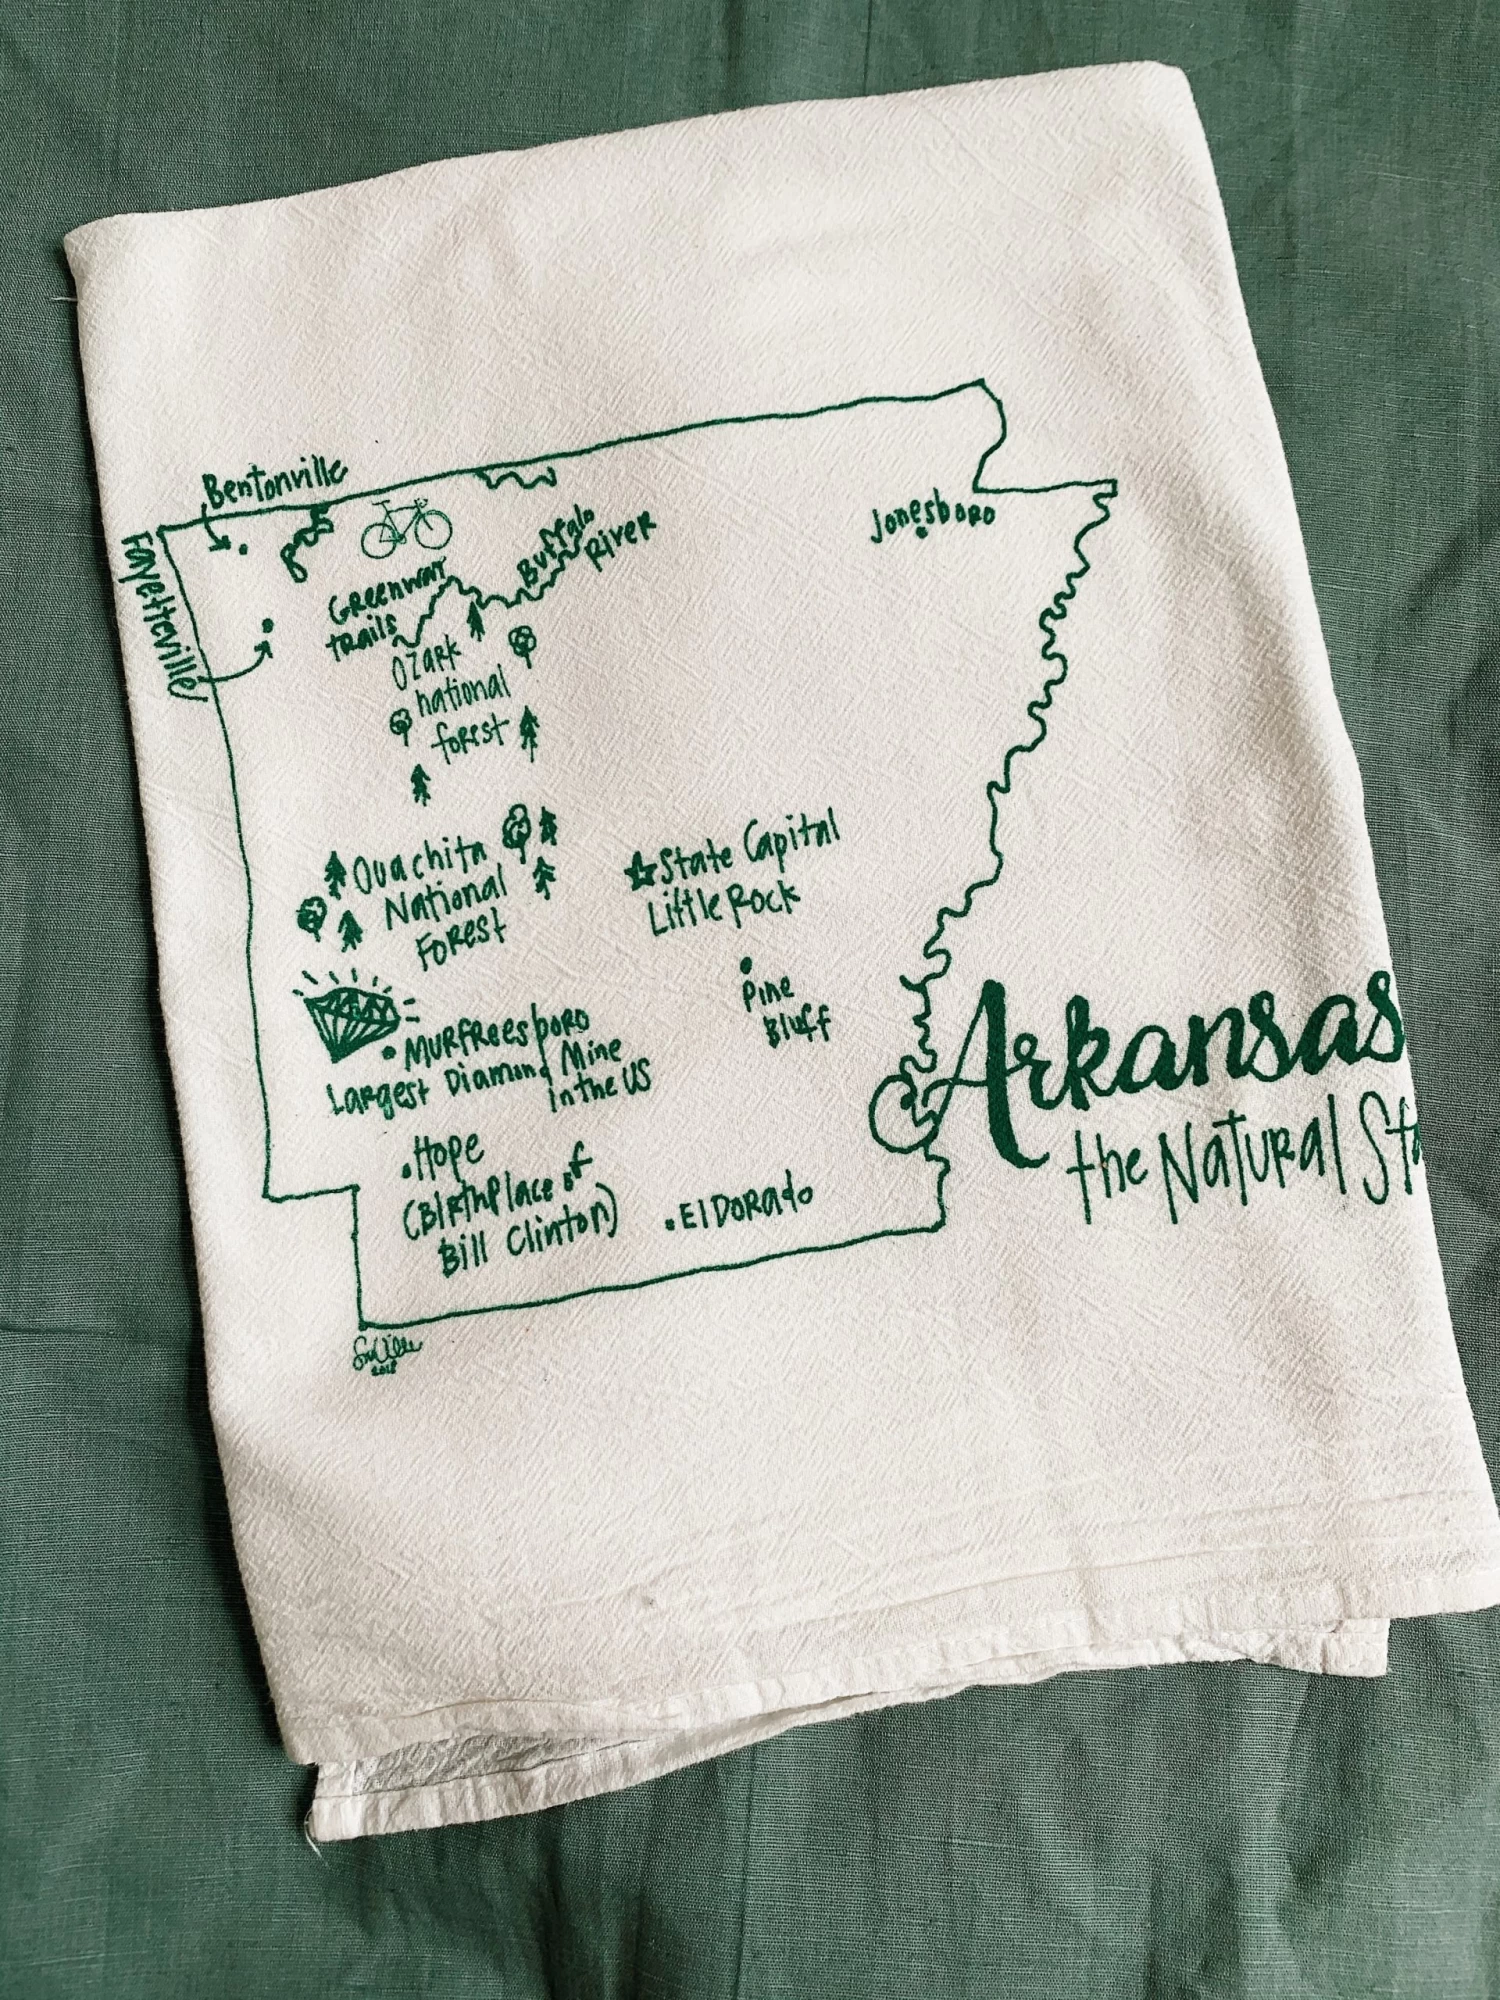 Bentonville
Fayetteville
Greenway
trails
Buffalo
River
Jonesboro
Ozark
national
forest
Ouachita
National
Forest
State Capital
Little Rock
Pine
Bluff
Murfreesboro
Largest Diamond Mine
in the US
Hope
(Birthplace of
Bill Clinton)
El Dorado
Arkansas
the Natural Sta
2018